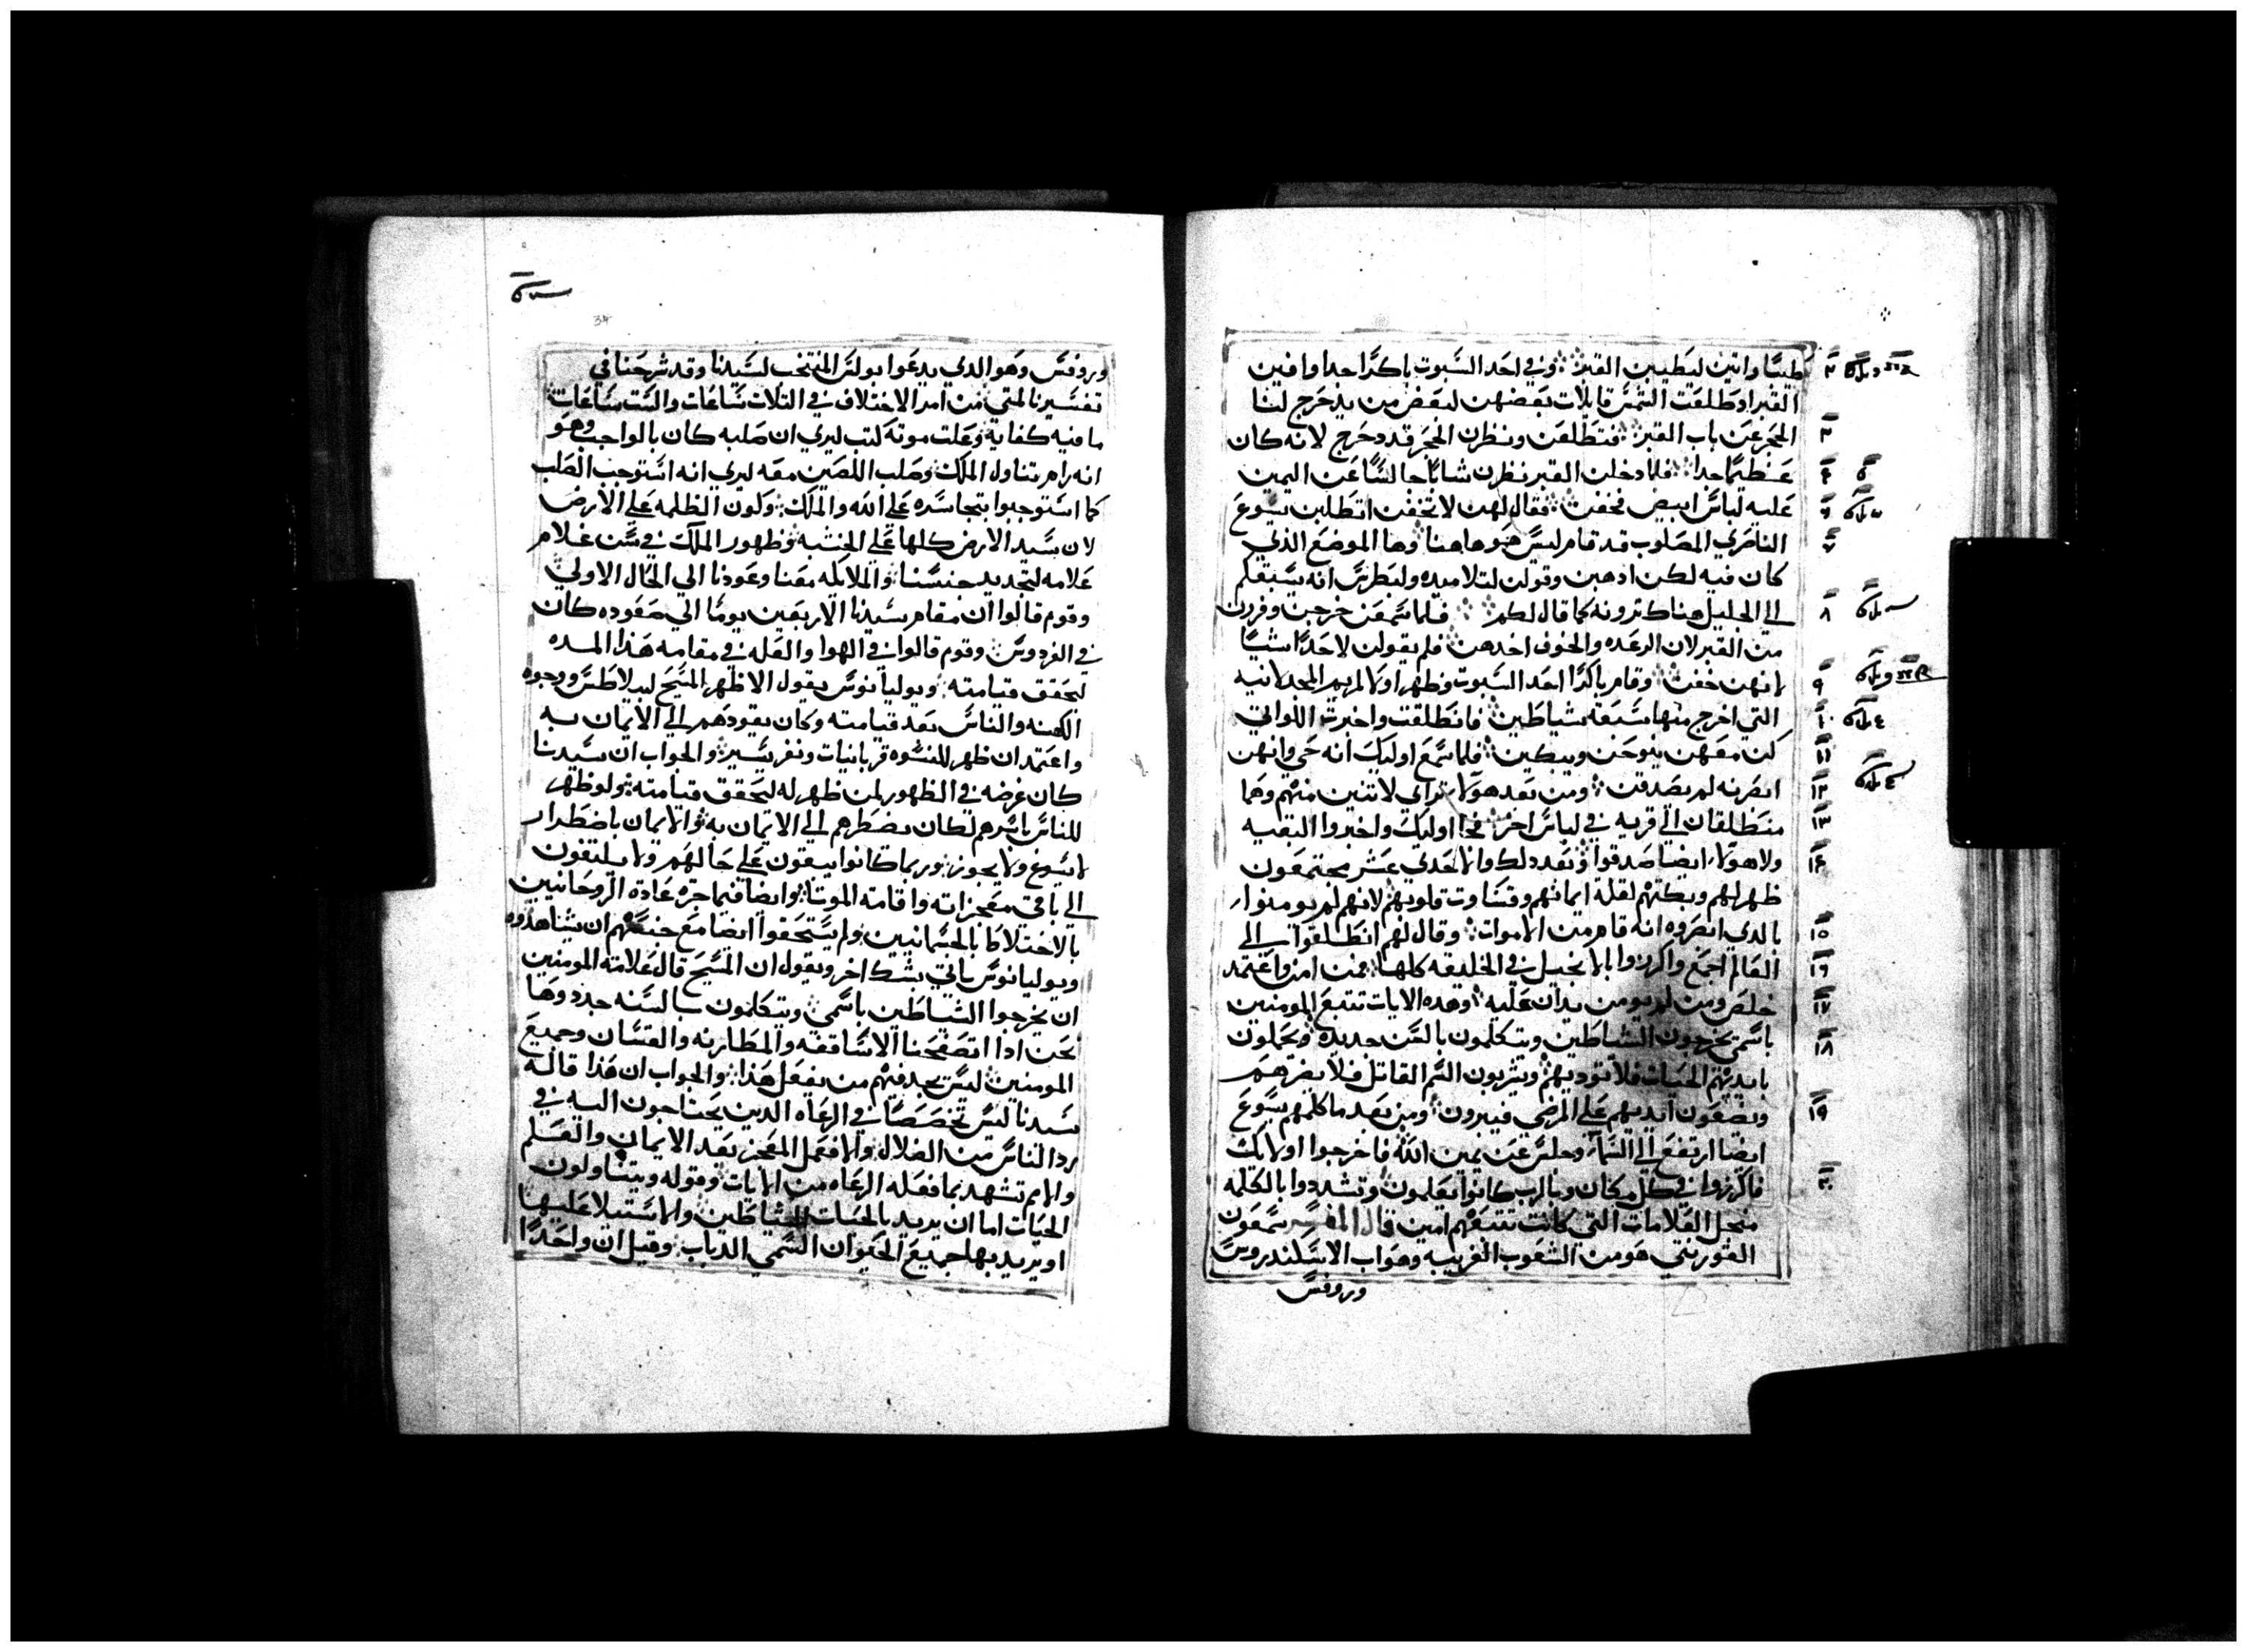 طيبًا واتين ليطيبن القبر وفي احد السبوت باكرًا جدا وافين
القبر اد طلعت الشمس قايلات بعضهن لبعض من يدحرج لنا
الحجر عن باب القبر فتطلعن ونظرن الحجر قد دحرج لانه كان
عظيمًا جدا فلما دخلن القبر نظرن شابًا جالسًا عن اليمين
عليه لباس ابيض فخفن فقال لهن لا تخفن اتطلبن يسوع
الناصري المصلوب قد قام ليس هو هاهنا وها الموضع الذي
كان فيه لكن ادهبن وقولن لتلاميده ولبطرس انه يسبقكم
الي الجليل هناك ترونه كما قال لكم فلما سمعن خرجن وفررن
من القبر لان الرعده والخوف اخدهن فلم يقولن لاحدًا شيًا
لانهن خفن وقام باكرًا احد السبوت وظهر اولا لمريم المجدلانيه
التي اخرج منها سبعه شياطين فانطلقت واخبرت اللواتي
كن معهن ينوحن ويبكين فلما سمع اوليك انه حي وانهن
ابصرنه لم يصدقن ومن بعد هولاء تراي لاتنين منهم وهما
منطلقان الي قريه في لباس اخر فجا اوليك واخبروا البقيه
ولا هولاء ايضا صدقوا وبعد دلك والاحدي عشر مجتمعون
ظهر لهم وبكتهم لقلة ايمانهم وقساوت قلوبهم لانهم لم يومنوا
بالدي ابصروه انه قام من الاموات وقال لهم انطلقوا الي
العالم اجمع واكرزوا بالانجيل في الخليقه كلها فمن امن واعتمد
خلص ومن لم يومن يدان عليه وهده الايات تتبع المومنين
باسمي يخرجون الشياطين ويتكلمون بالسن جديده ويحملون
بايديهم الحيات فلا توديهم ويشربون السم القاتل فلا يضرهم
ويضعون ايديهم علي المرضي فيبرون ومن بعد ما كلمهم يسوع
ايضا ارتفع الي السماء وجلس عن يمين الله فاخرجوا اولايك
فاكرزوا في كل مكان وبالرب كانوا يعلمون وتشددوا بالكلمه
منجل العلامات التي كانت تتبعهم امين قال المفسر سمعون
القورنيني هو من الشعوب الغريبه وهو اب الاسكندروس
وروفس
34
وروفس وهو الدي يدعوا بولس المنتخب لسيدنا وقد شرحنا في
تفسيرنا لمتي من امر الاختلاف في التلات ساعات والست ساعات
ما فيه كفاية وعلت موته كتب ليري ان صلبه كان بالواجب وهو
انه رام تناول الملك وصلب اللصين معه ليري انه استوجب الصلب
كما استوجبوا بتجاسره علي الله والملك وكون الظلمه علي الارض
لان سيد الارض كلها علي الخشبه وظهور الملاك في سن غلام
علامه لتجديد جنسنا والملايكه معنا وعودنا الي الحال الاولي
وقوم قالوا ان مقام سيدنا الاربعين يومًا الي صعوده كان
في الفردوس وقوم قالوا في الهوا والعله في مقامه هذا المده
ليحقق قيامته ويوليانوس يقول الا ظهر المسيح لبيلاطس ووجوه
الكهنه والناس بعد قيامته وكان يقودهم الي الايمان به
واعتمد ان ظهر للنسوه قربانيات ونفر يسير والجواب ان سيدنا
كان غرضه في الظهور لمن ظهر له ليحقق قيامته ولو ظهر
للناس باسرهم لكان يضطرهم الي الايمان به والايمان باضطرار
لا يسوغ ولا يجوز وربما كانوا يبقون علي حالهم ولا يلتفون
الي باقي معجزاته واقامته الموتا وايضا فيما جره عادة الروحانيين
بالاختلاط بالجسمانيين ولم يستحقوا ايضا مع خبثهم ان يشاهدوه
ويوليانوس ياتي بشك اخر ويقول ان المسيح قال علامة المومنين
ان يخرجوا الشياطين باسمي ويتكلمون بالسنه جدد وها
نحن ادا اتصفحنا الاساقفه والمطارنه والقسان وجميع
المومنين ليس نجد فيهم من يفعل هذا والجواب ان هذا قاله
سيدنا ليس تخصصًا في الرعاه الدين يحتاجون اليه في
رد الناس من الضلال والا فعمل المعجز بعد الايمان والعلم
والامم تشهد بما فعله الرعاه من الايات وقوله ويتناولون
الحيات اما ان يريد بالحيات الشياطين والاستيلا عليها
او يريد بها جميع الحيوان السمي الدباب وقيل ان واحدًا